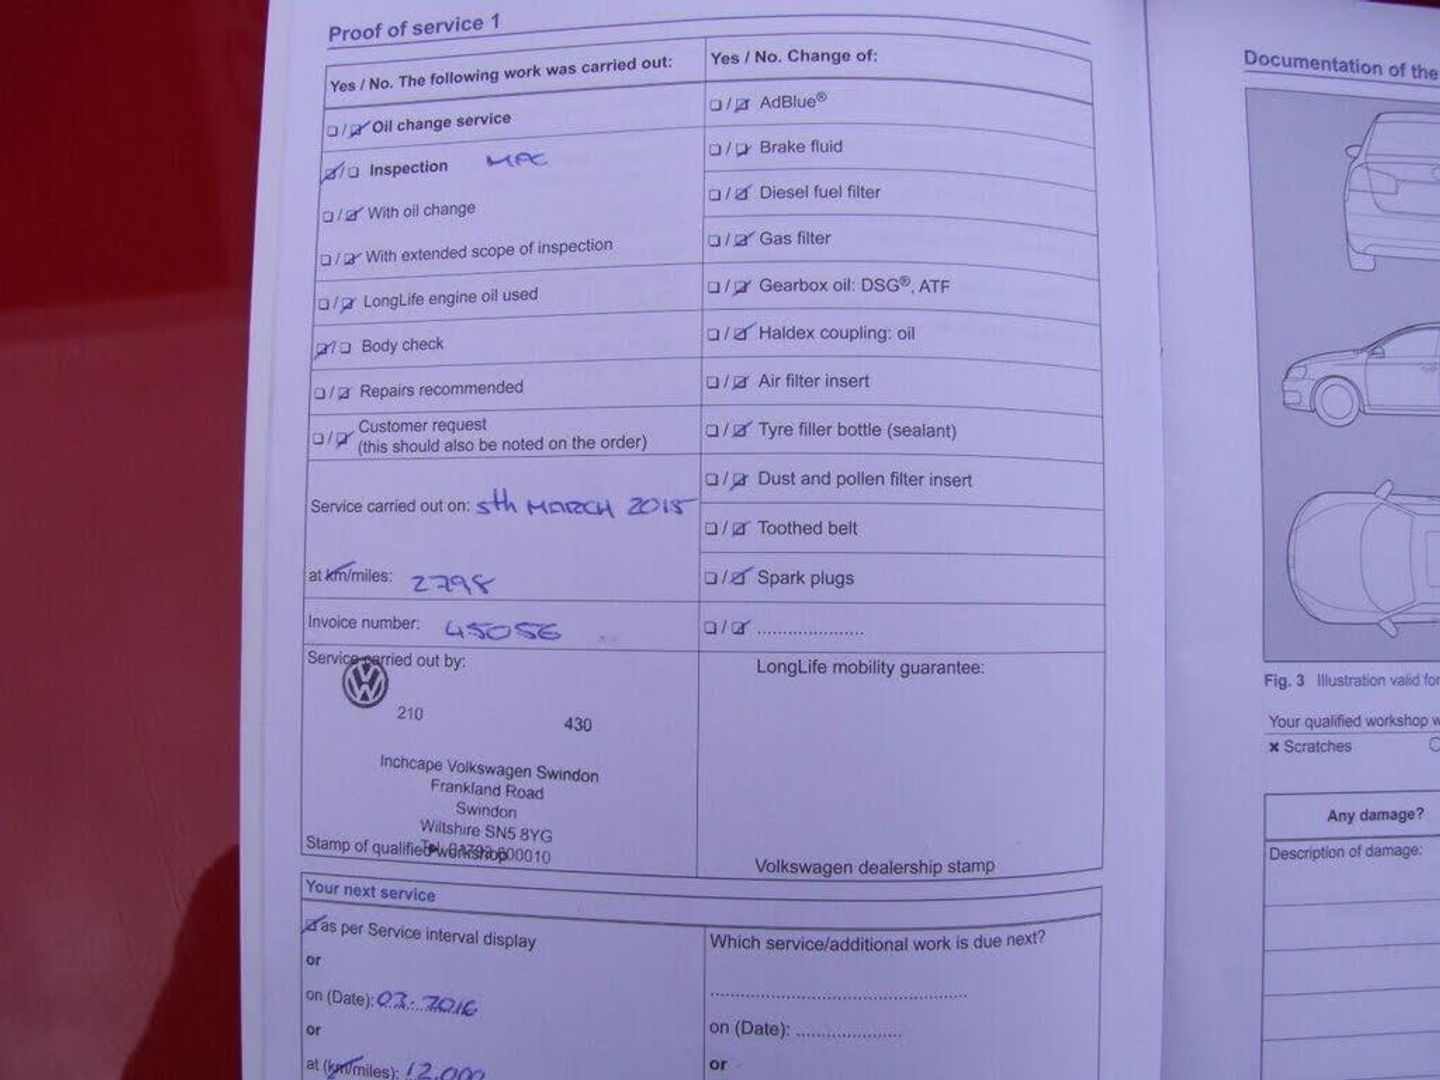 Proof of service 1
Yes / No. The following work was carried out:
☐ / ☑ Oil change service
☑ / ☐ Inspection MPC
☐ / ☑ With oil change
☐ / ☑ With extended scope of inspection
☐ / ☑ LongLife engine oil used
☑ / ☐ Body check
☐ / ☑ Repairs recommended
☐ / ☑ Customer request
(this should also be noted on the order)
Service carried out on: 5th MARCH 2015
at km/miles: 2798
Invoice number: 45056
Service carried out by:
210 430
Inchcape Volkswagen Swindon
Frankland Road
Swindon
Wiltshire SN5 8YG
Stamp of qualified workshop
Yes / No. Change of:
☐ / ☑ AdBlue®
☐ / ☑ Brake fluid
☐ / ☑ Diesel fuel filter
☐ / ☑ Gas filter
☐ / ☑ Gearbox oil: DSG®, ATF
☐ / ☑ Haldex coupling: oil
☐ / ☑ Air filter insert
☐ / ☑ Tyre filler bottle (sealant)
☐ / ☑ Dust and pollen filter insert
☐ / ☑ Toothed belt
☐ / ☑ Spark plugs
☐ / ☑ .....................
LongLife mobility guarantee:
Volkswagen dealership stamp
Your next service
☑ as per Service interval display
or
on (Date): 03. 2016
or
at (km/miles): 12,000
Which service/additional work is due next?
on (Date): .....................
or
Documentation of the
Fig. 3 Illustration valid for
Your qualified workshop w
× Scratches
Any damage?
Description of damage: